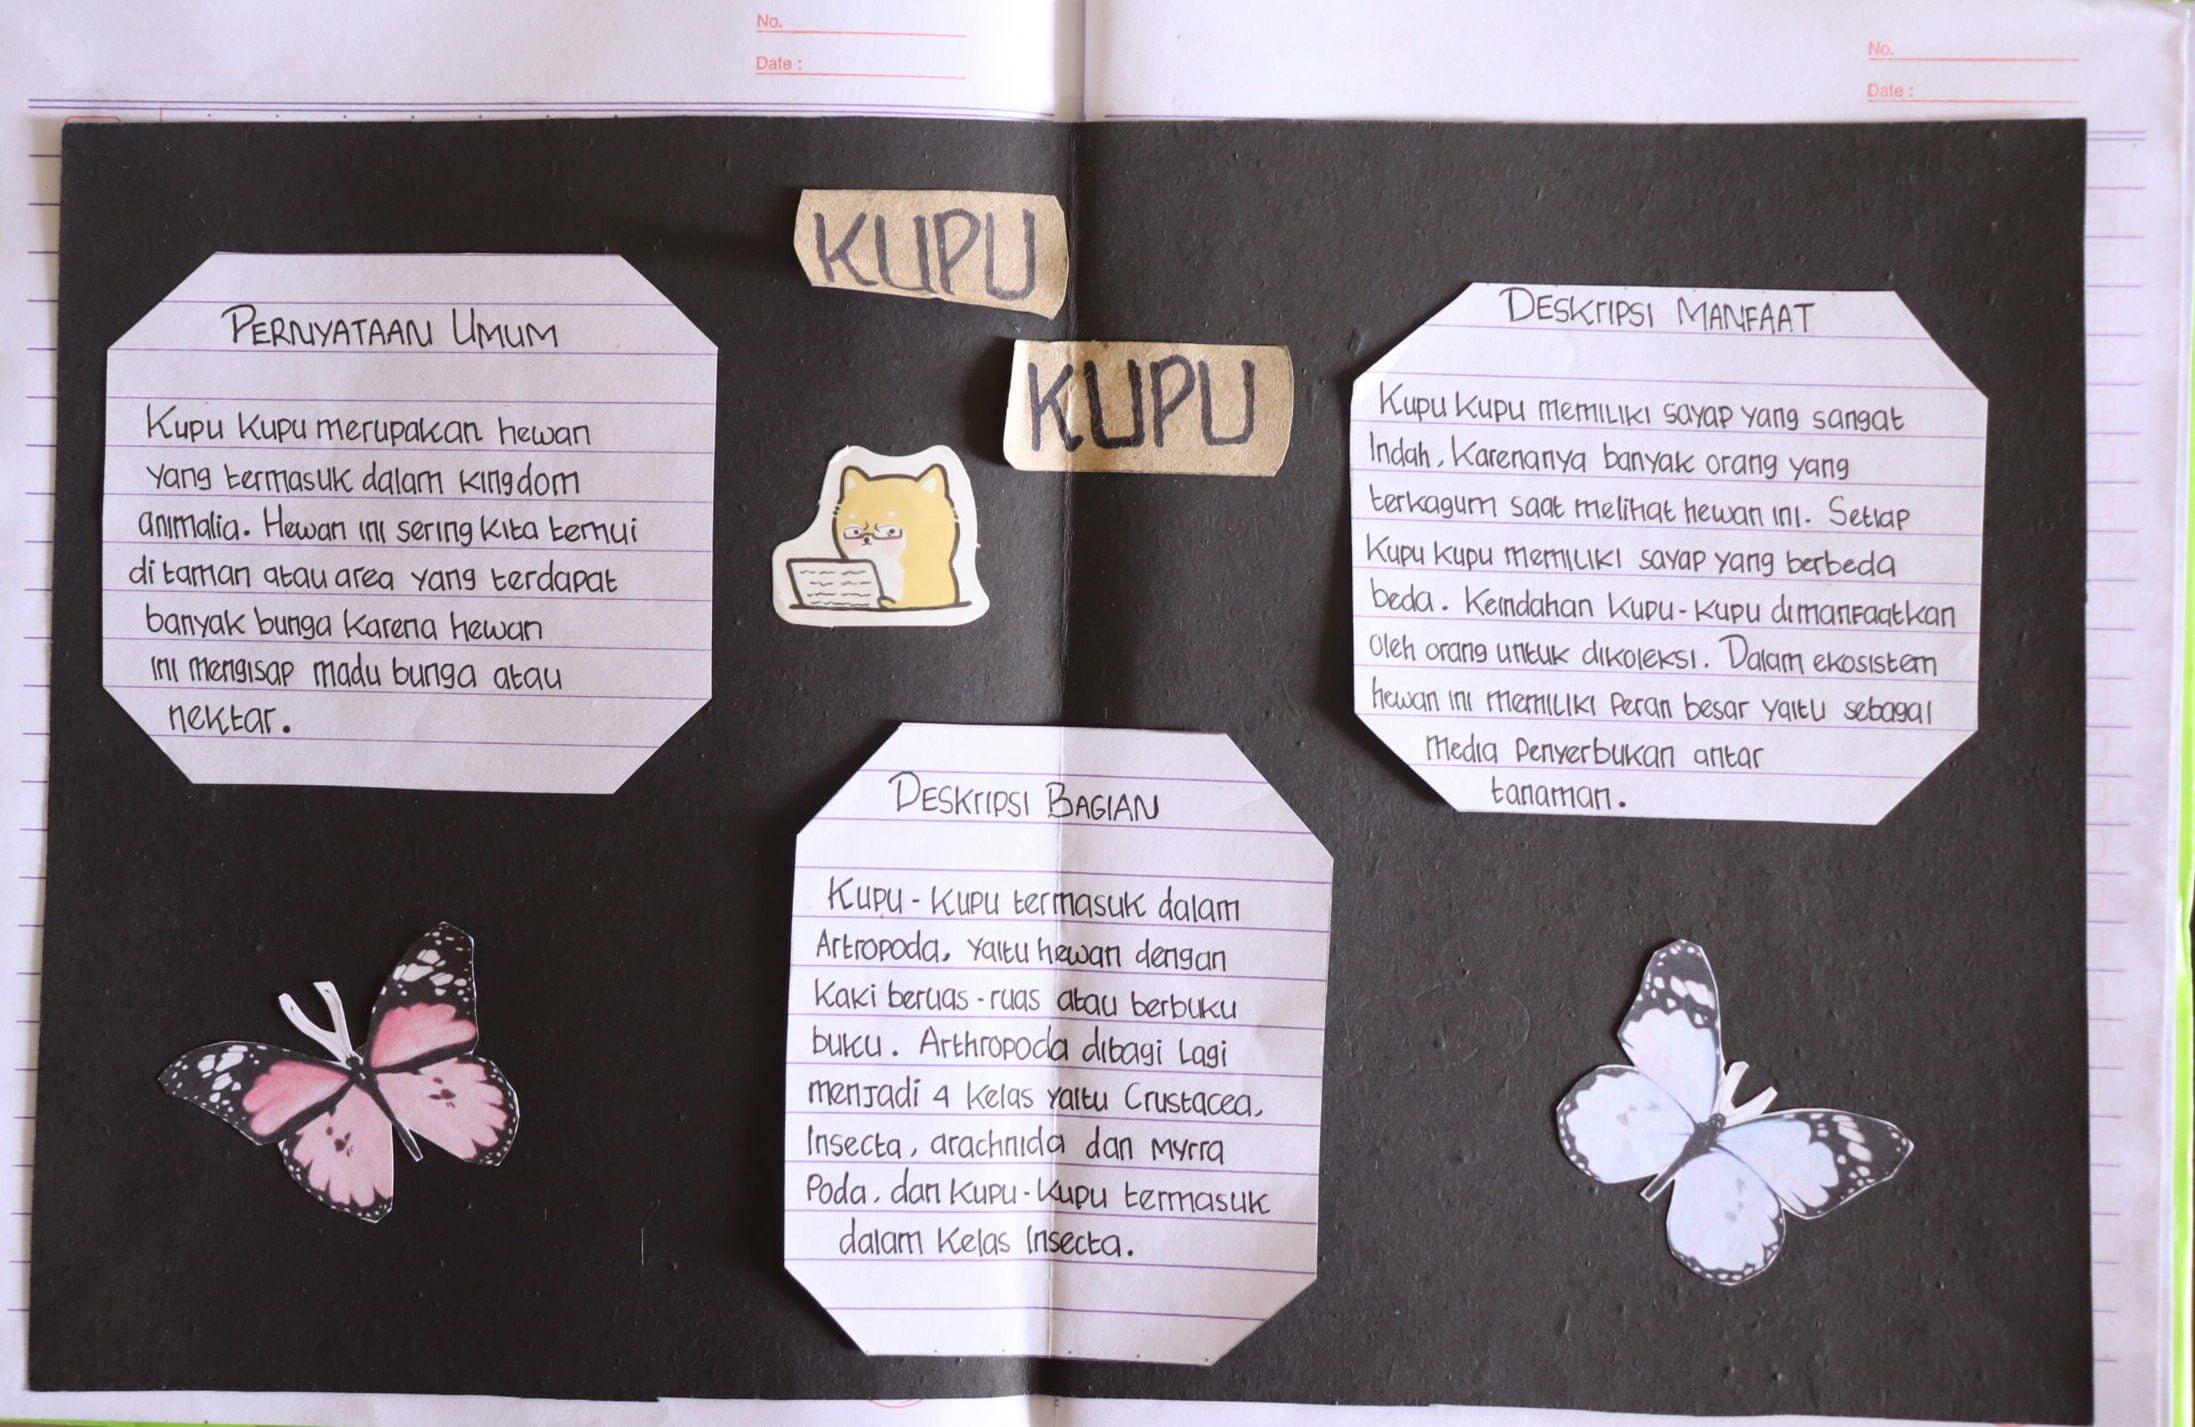 No.
Date :
No.
Date :
KUPU
KUPU
PERNYATAAN UMUM
Kupu Kupu merupakan hewan
yang termasuk dalam kingdom
animalia. Hewan ini sering kita temui
di taman atau area yang terdapat
banyak bunga karena hewan
ini mengisap madu bunga atau
nektar.
DESKRIPSI BAGIAN
Kupu - Kupu termasuk dalam
Artropoda, yaitu hewan dengan
kaki beruas - ruas atau berbuku
buku. Arthropoda dibagi lagi
menjadi 4 kelas yaitu Crustacea,
Insecta, arachnida dan Myrra
Poda, dan Kupu - Kupu termasuk
dalam kelas Insecta.
DESKRIPSI MANFAAT
Kupu Kupu memiliki sayap yang sangat
Indah, Karenanya banyak orang yang
terkagum saat melihat hewan ini. Setiap
Kupu kupu memiliki sayap yang berbeda
beda. Keindahan Kupu - kupu dimanfaatkan
oleh orang untuk dikoleksi. Dalam ekosistem
hewan ini memiliki peran besar yaitu sebagai
media Penyerbukan antar
tanaman.